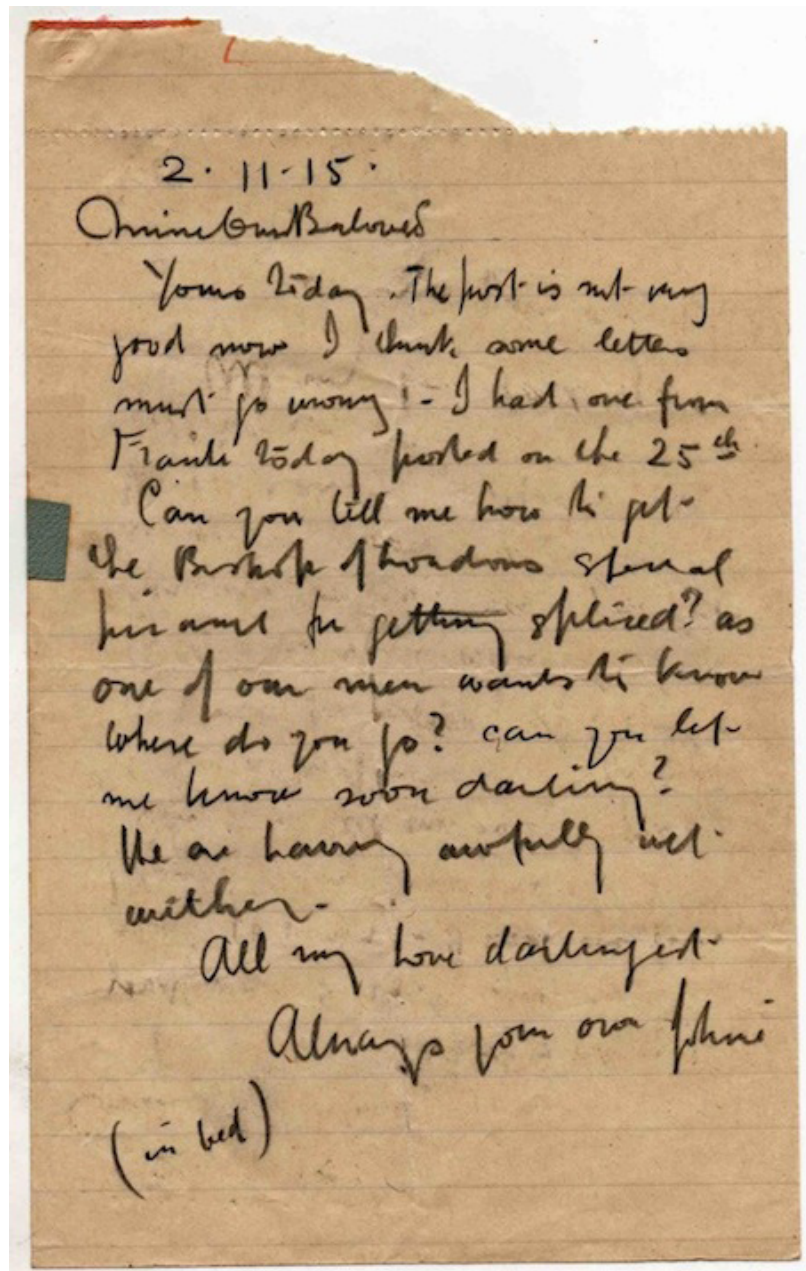 2. 11. 15.
Mine Own Beloved
Yours today. The post is not very
good now I think some letters
must go wrong! - I had one from
Frank today posted on the 25th
Can you tell me how to get
the Bishop of Londons special
for getting spliced? as
one of our men wants to know
where do you go? can you let
me know soon darling?
We are having awfully wet
weather.
All my love darlingest
Always your own Johnie
(in bed)